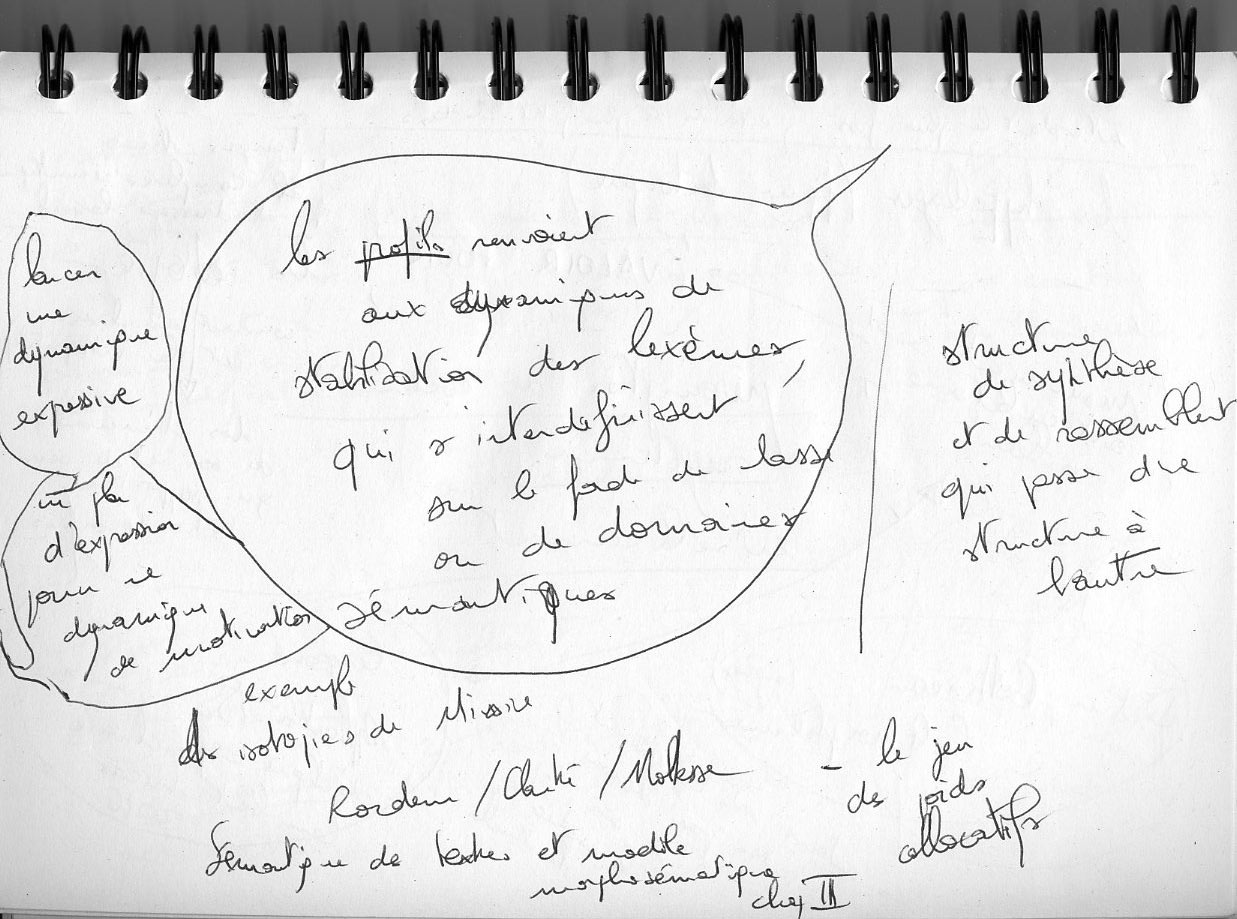 lancer
une
dynamique
expressive
un plan
d'expression
pour une
dynamique
de motivation
les profils renvoient
aux dynamiques de
stabilisation des lexèmes,
qui s'interdéfinissent
sur le fond de classe
ou de domaines
sémantiques
structure
de synthèse
et de rassemblent
qui passe d'une
structure à
l'autre
exemple
des isotopies de Missire
Rondeur / Clarté / Mollesse
Sémantique des textes et modèle
morphosémantique
chap III
- le jeu
des poids
allocatifs